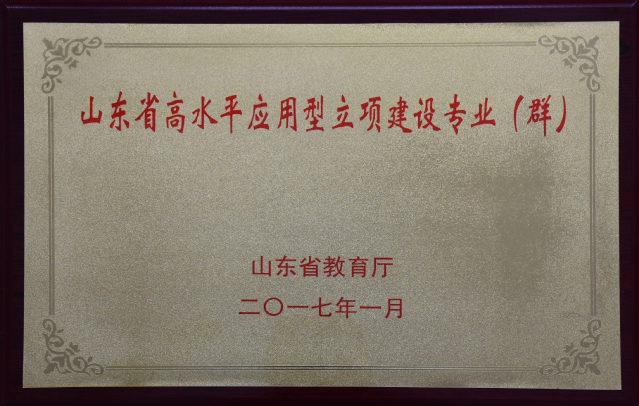 山东省高水平应用型立项建设专业（群）
山东省教育厅
二〇一七年一月